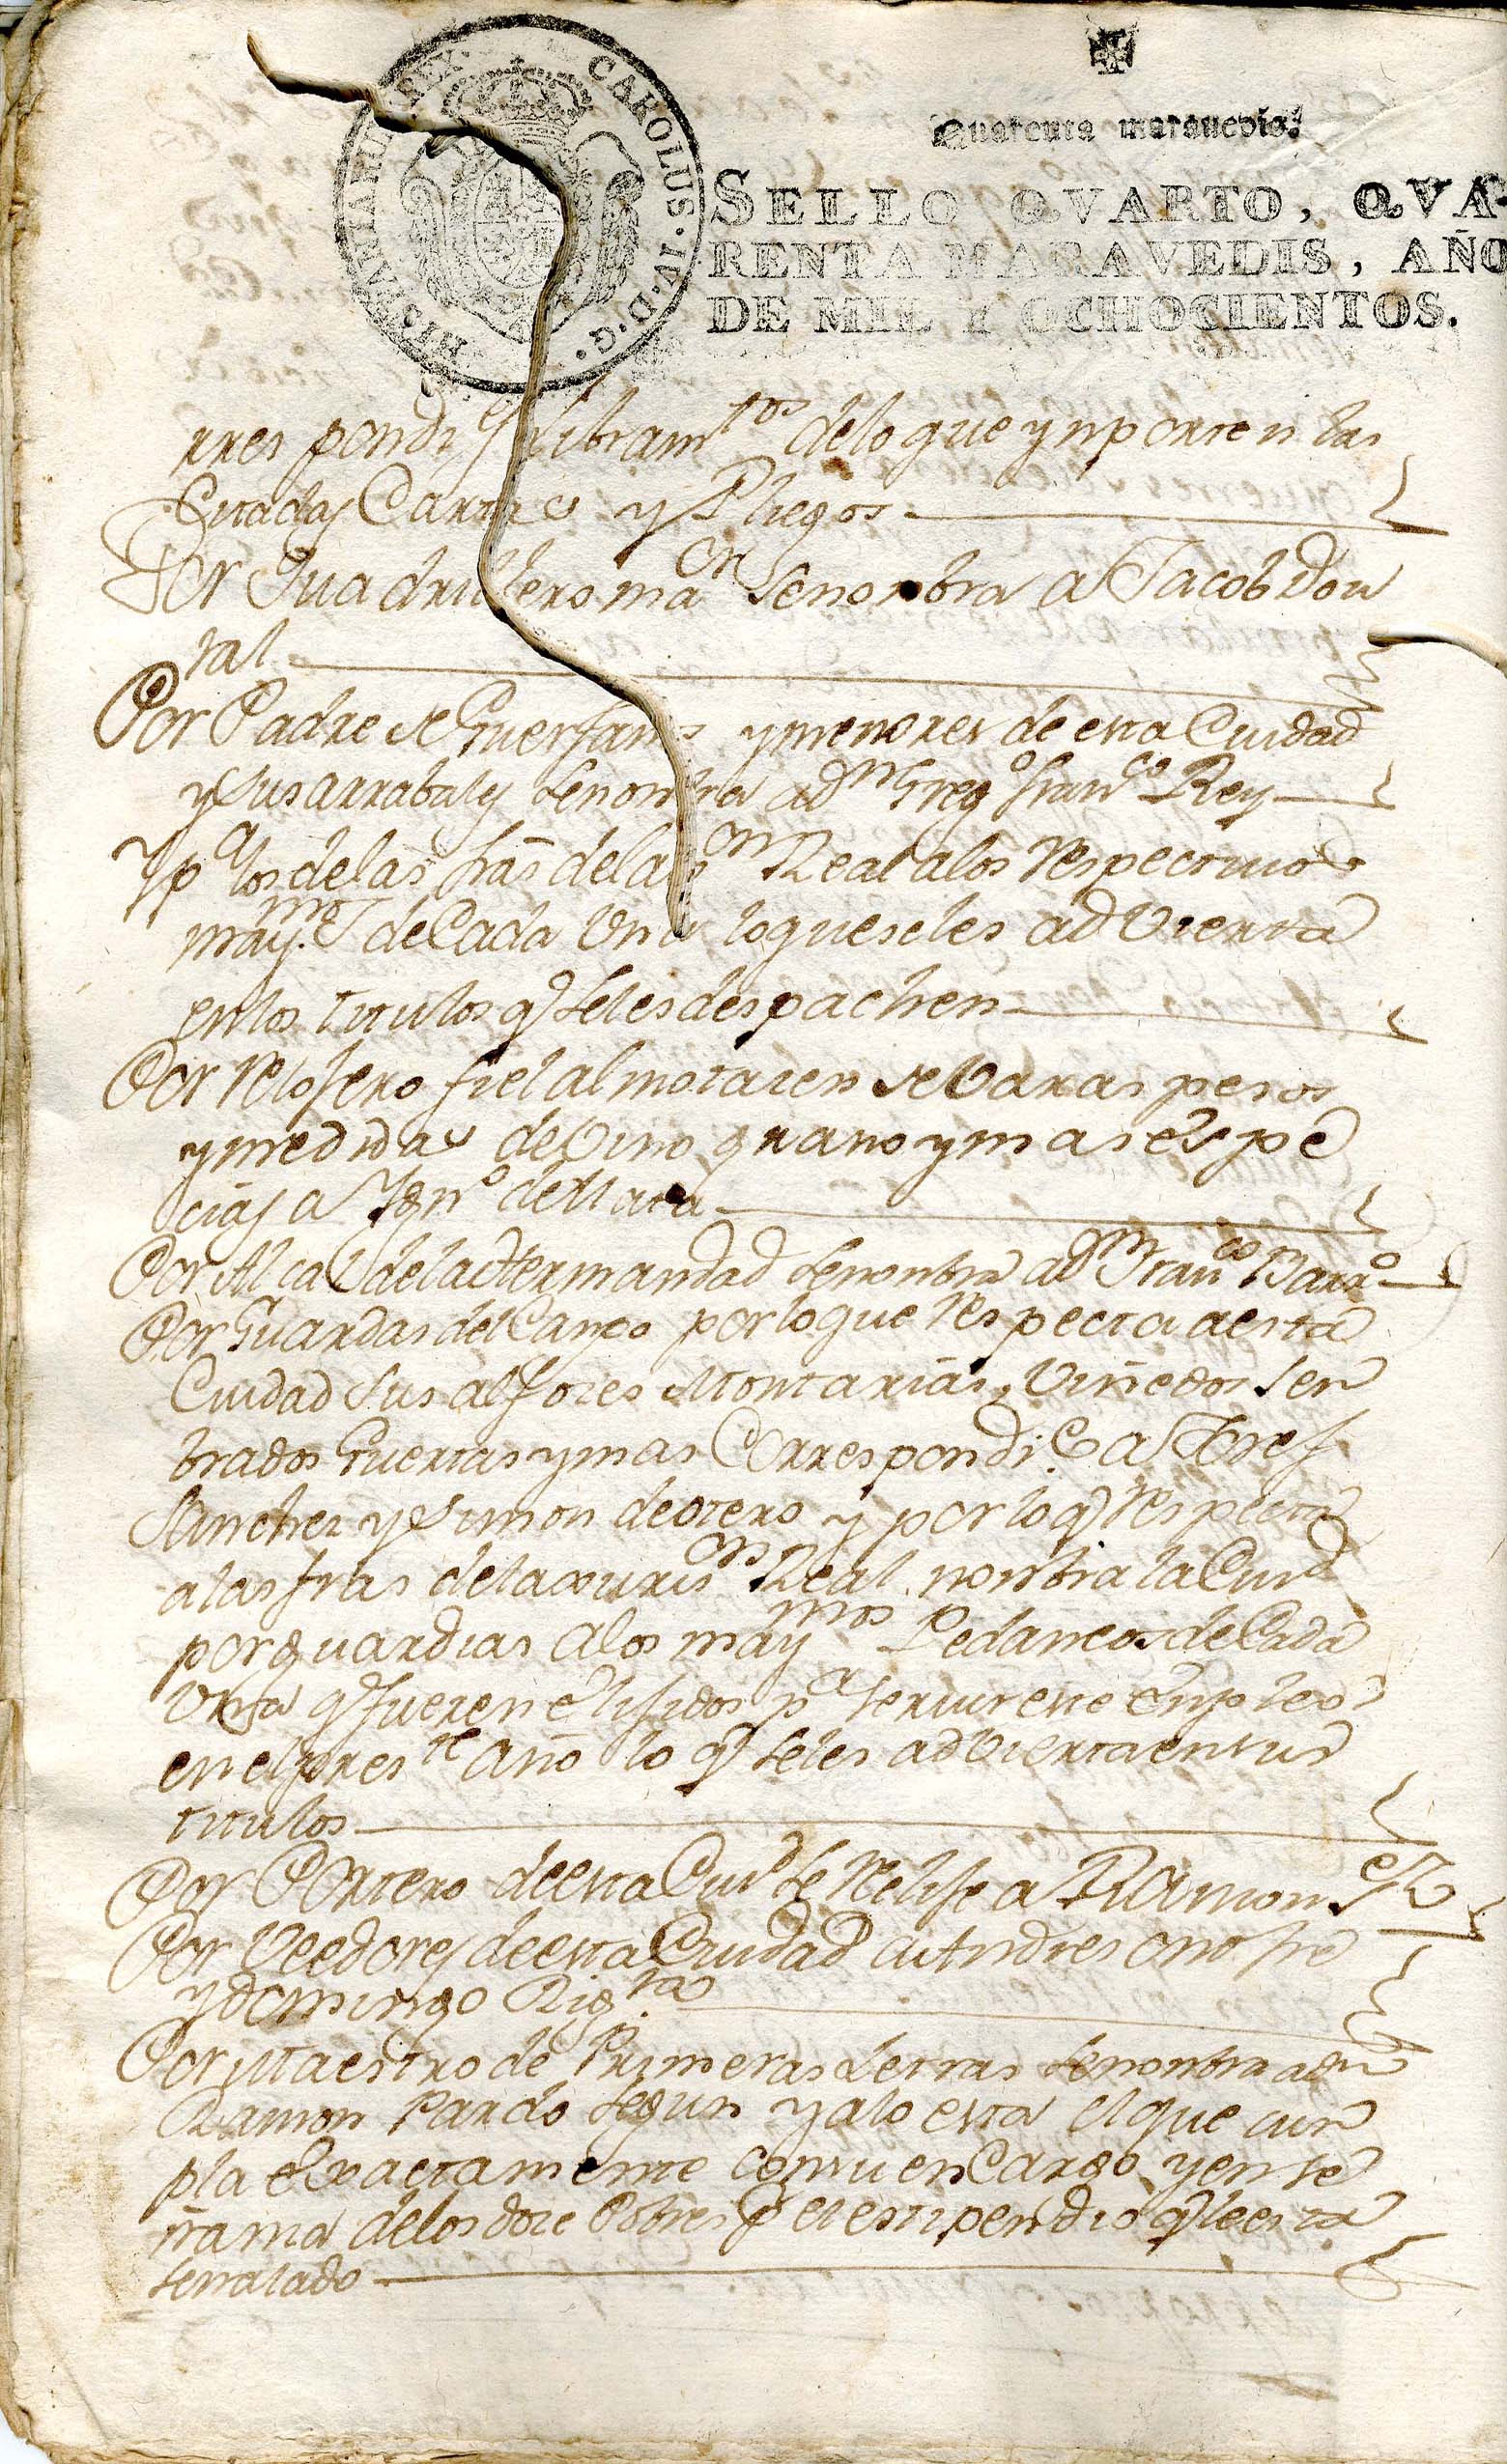 CAROLUS · IV · D · G ·
HISPANIARUM REX
Quarenta maravedis.
SELLO QVARTO, QVA-
RENTA MARAVEDIS, AÑO
DE MIL Y OCHOCIENTOS.
rrespondi.es libram.tos delo que ynporten las
Citadas Cartas y Pliegos
Por Quadrillero ma.or Senonbra a Jacob Dou
ral
Por Padre de Guerfanos y menores de esta Ciudad
y sus arrabales Senonbra a Dn Greg.o Fran.co Rey
Y p.a los delas fras dela Real alos Respectivos
may.mos de Cada Una loqueseles advierta
enlos titulos q.e Seles despachen
Por Relojero fiel almotazen de Baras pesos
y medidas de Vino grano y mas espe
cias a Ign.o de Mata
Por Alcal.e dela Hermandad Senonbra a Dn Fran.co Barr.o
Por Guardas del Canpo por loque Respecta aesta
Ciudad Sus alfozes Montarias, Viñedos Sen
brados Guertas y mas Correspondi.te a Josef
Sanchez y Simon de otero y por lo q.e Respecta
alas fras dela Juris.on Real nonbra la Ciud
por guardias alos may.mos Pedaneos de Cada
Una q.e fueren elijidos p.a Servir este enpleo
en el pres.te año lo q.e Seles advierta en sus
titulos
Por Portero de esta Ciu.d Se Relije a Ramon
Por Veedores de esta Ciudad a Andres onofre
y domingo Rig.ra
Por Maestro de Primeras Letras Senonbra a dn
Ramon Pardo Segun ya lo esta el que cun
pla exactamente con su enCargo y ense
ñama delos doze Pobres p.r el estipendio q.e le esta
Señalado